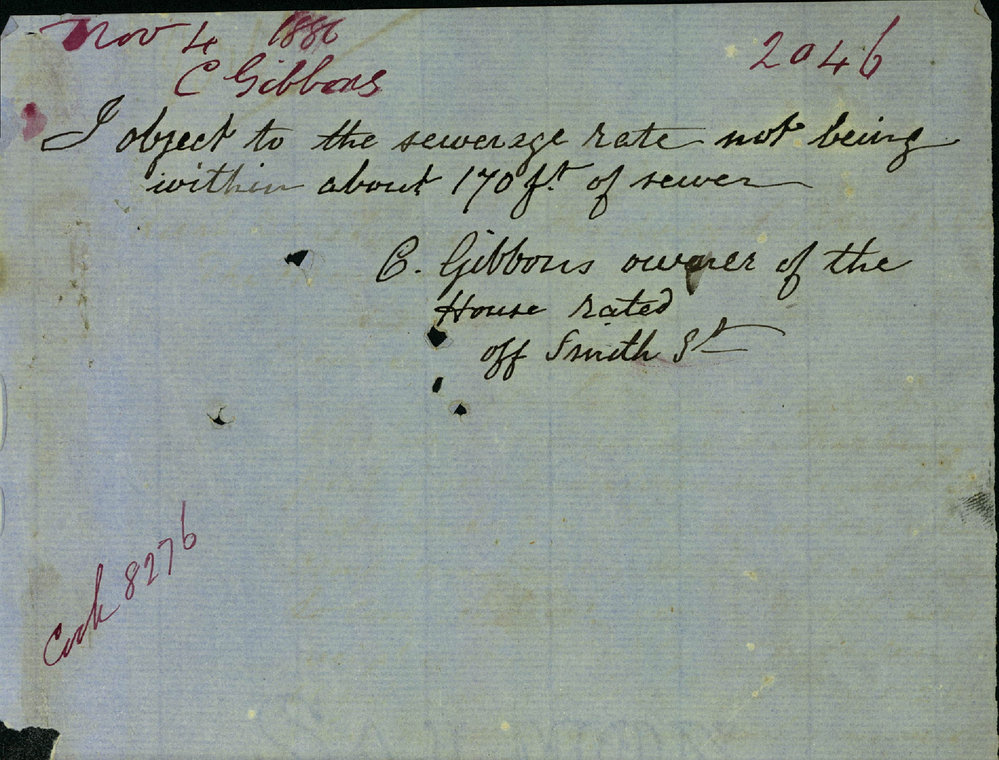 Nov 4 1880
2046
C Gibbons
I object to the sewerage rate not being
within about 170 ft of sewer
C. Gibbons owner of the
House rated
off Smith St
Cook 8276